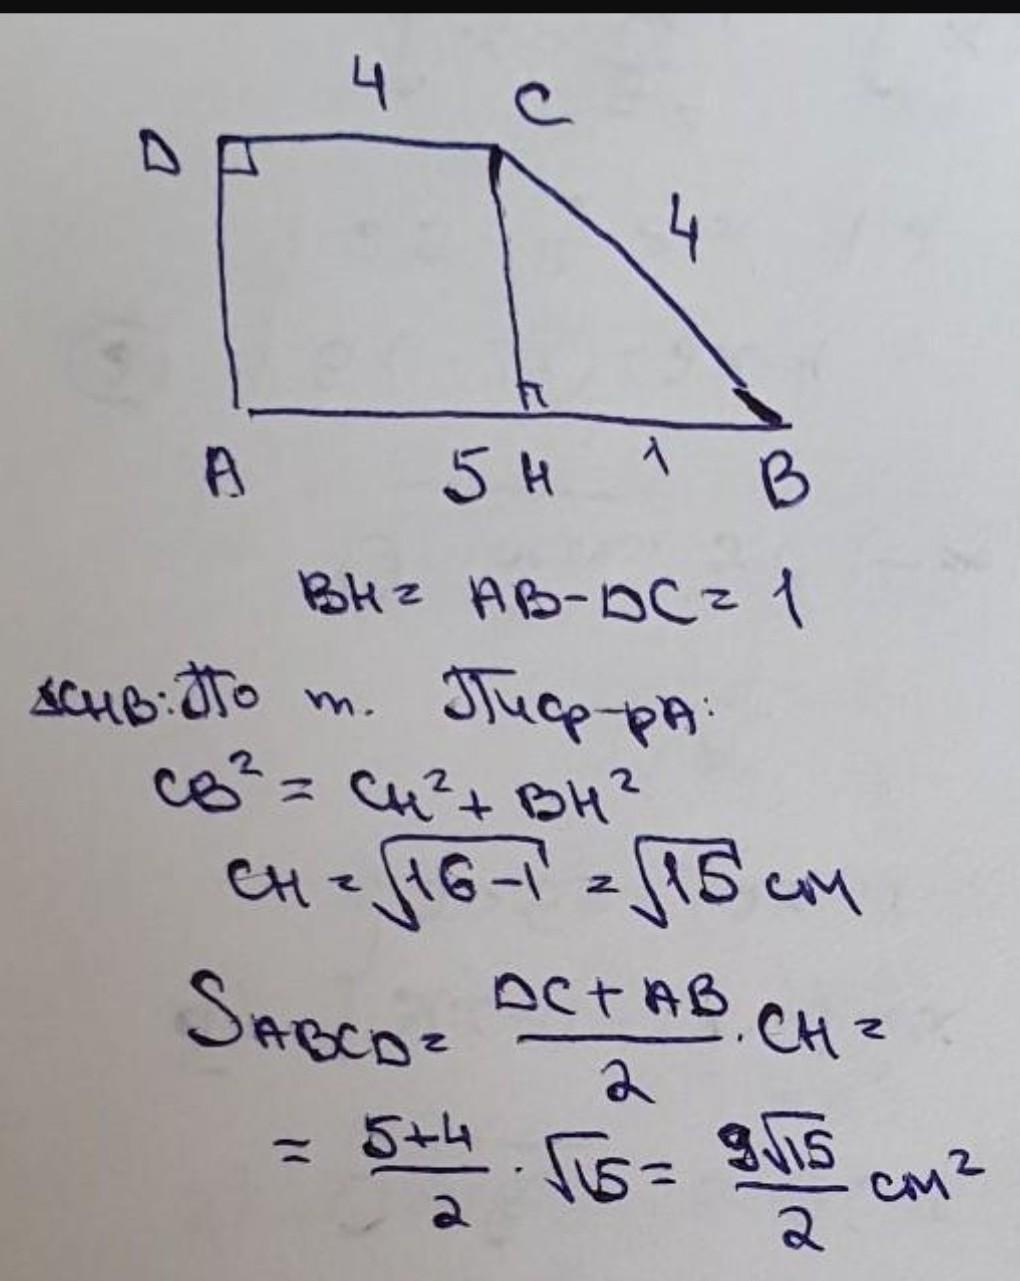 4
C
D
4
A 5 H 1 B
BH = AB - DC = 1
△CHB: По т. Пиф-ра:
CB² = CH² + BH²
CH = √16-1 = √15 см
S_ABCD = (DC + AB)/2 · CH =
= (5+4)/2 · √15 = 9√15/2 см²